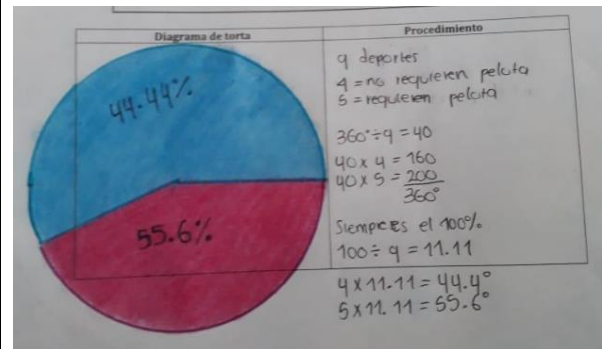 Diagrama de torta
44.44%
55.6%
Procedimiento
9 deportes
4 = no requieren pelota
5 = requieren pelota
360° ÷ 9 = 40
40 x 4 = 160
40 x 5 = 200
360°
Siempre es el 100%
100 ÷ 9 = 11.11
4 x 11.11 = 44.4°
5 x 11.11 = 55.6°